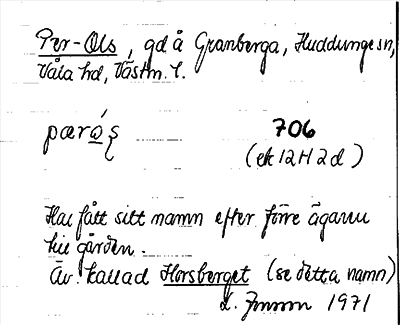 Per-Ols, gd å Granberga, Huddunge sn,
Våla hd, Västm. l.
pæròs 706
(ek 12H2d)
Har fått sitt namn efter förre ägaren
till gården.
Äv. kallad Horsberget (se detta namn)
1971